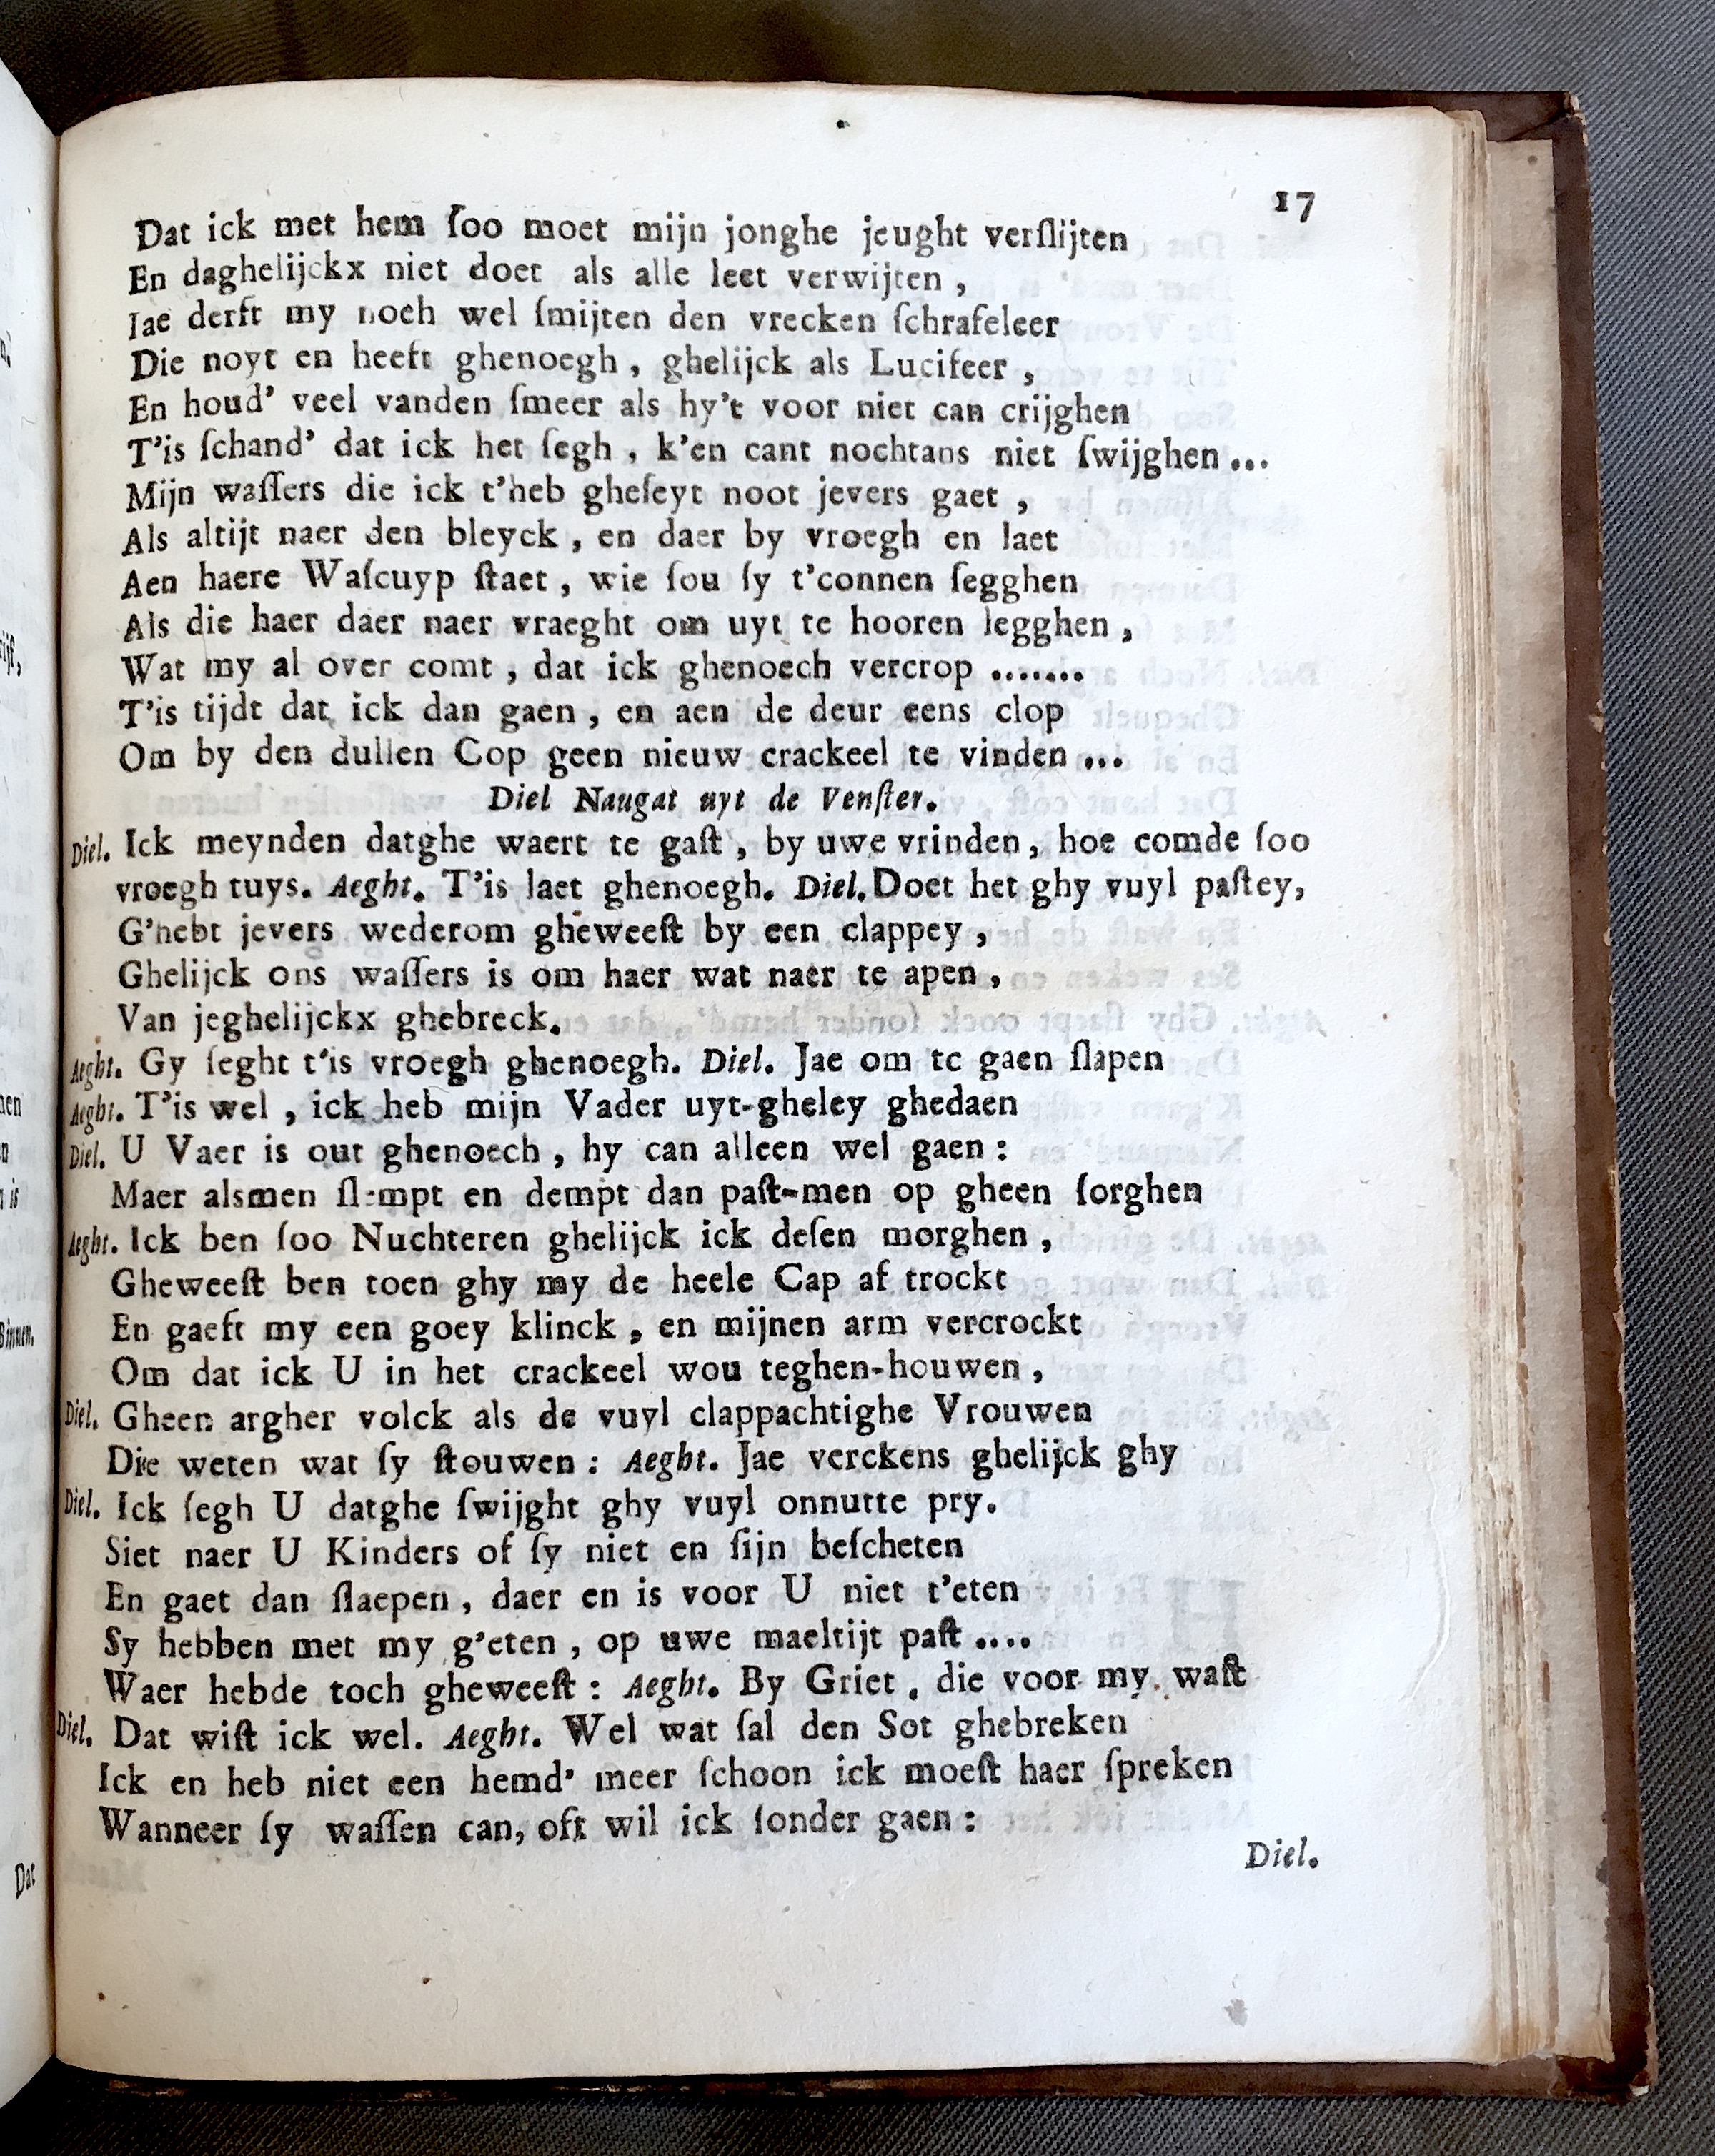 17
Dat ick met hem ſoo moet mijn jonghe jeught verſlijten
En daghelijckx niet doet als alle leet verwijten ,
Jae derft my noch wel ſmijten den vrecken ſchrafeleer
Die noyt en heeft ghenoegh , ghelijck als Lucifeer ,
En houd' veel vanden ſmeer als hy't voor niet can crijghen
T'is ſchand' dat ick het ſegh , k'en cant nochtans niet ſwijghen ...
Mijn waſſers die ick t'heb gheſeyt noot jevers gaet ,
Als altijt naer den bleyck , en daer by vroegh en laet
Aen haere Waſcuyp ſtaet , wie ſou ſy t'connen ſegghen
Als die haer daer naer vraeght om uyt te hooren legghen ,
Wat my al over comt , dat ick ghenoech vercrop .......
T'is tijdt dat ick dan gaen , en aen de deur eens clop
Om by den dullen Cop geen nieuw crackeel te vinden ...
Diel Naugat uyt de Venſter.
Diel. Ick meynden datghe waert te gaſt , by uwe vrinden , hoe comde ſoo
vroegh tuys. Aeght. T'is laet ghenoegh. Diel. Doet het ghy vuyl paſtey,
G'hebt jevers wederom gheweeſt by een clappey ,
Ghelijck ons waſſers is om haer wat naer te apen ,
Van jeghelijckx ghebreck.
Aeght. Gy ſeght t'is vroegh ghenoegh. Diel. Jae om te gaen ſlapen
Aeght. T'is wel , ick heb mijn Vader uyt-gheley ghedaen
Diel. U Vaer is out ghenoech , hy can alleen wel gaen :
Maer alsmen ſlempt en dempt dan paſt-men op gheen ſorghen
Aeght. Ick ben ſoo Nuchteren ghelijck ick deſen morghen ,
Gheweeſt ben toen ghy my de heele Cap af trockt
En gaeft my een goey klinck , en mijnen arm vercrockt
Om dat ick U in het crackeel wou teghen-houwen ,
Diel. Gheen argher volck als de vuyl clappachtighe Vrouwen
Die weten wat ſy ſtouwen : Aeght. Jae verckens ghelijck ghy
Diel. Ick ſegh U datghe ſwijght ghy vuyl onnutte pry.
Siet naer U Kinders of ſy niet en ſijn beſcheten
En gaet dan ſlaepen , daer en is voor U niet t'eten
Sy hebben met my g'eten , op uwe maeltijt paſt ....
Waer hebde toch gheweeſt : Aeght. By Griet , die voor my waſt
Diel. Dat wiſt ick wel. Aeght. Wel wat ſal den Sot ghebreken
Ick en heb niet een hemd' meer ſchoon ick moeſt haer ſpreken
Wanneer ſy waſſen can, oft wil ick ſonder gaen :
Diel.
ijſt,
is
Binnen.
Dat